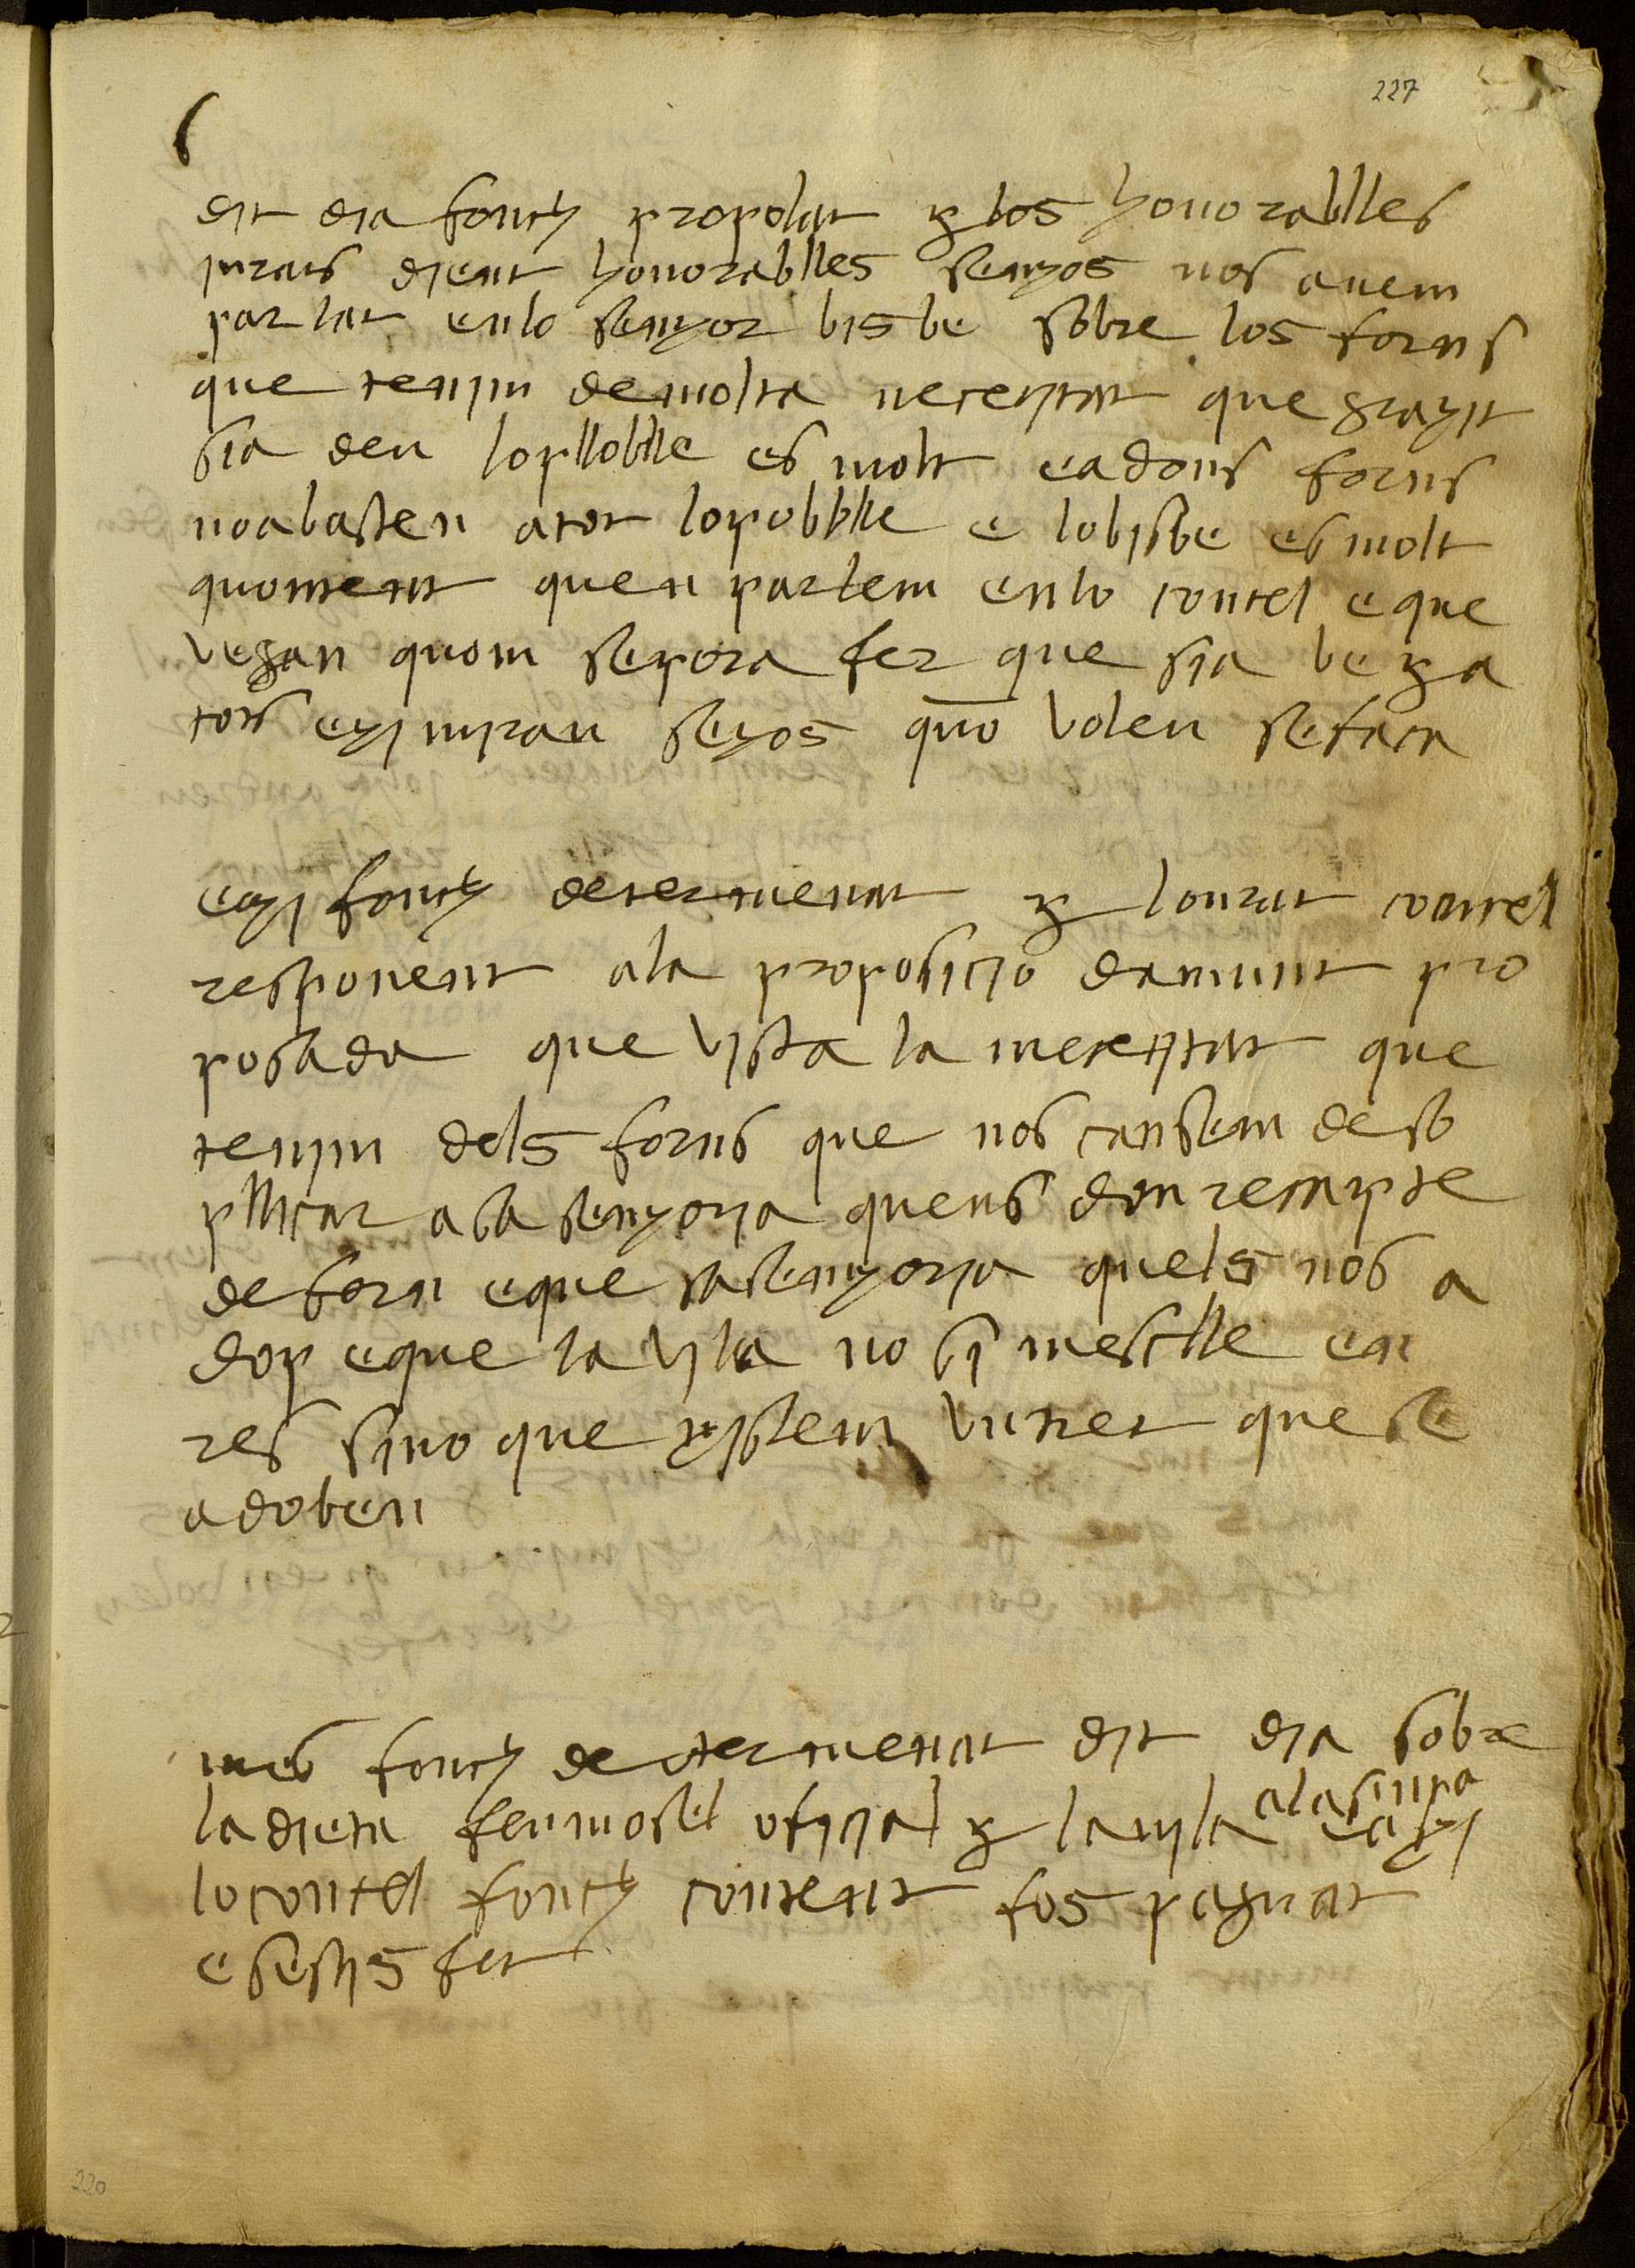 227
dit dia fonch propolat per los honorablles
jurats dient honorablles senyos nos avem
parlat enlo senyor bisbe sobre los forns
que tenim demolta necesitat que grasit
sia deu lopllobble es molt eadous forns
noabasten atot lopobblle e lobisbe es molt
quontent quen parlem enlo concel eque
vegan quom sepora fer que sia be per a
tots exi miran senyos quō volen sefaca
eaxi fonch determenat per lonrat concel
responent ala proposicio damunt pro
posada que vista la necesitat que
tenim dels forns que nos cansem deso
pllicar asa senyoria quens don recapte
deforn eque sasenyoria quels nos a
dop eque la vila no si mesclle en
res sino que instem vutret que se
adoben
mes fonch determenat dit dia sobre
ladieta fenmosel oficial per lavila alasinya eaxi
loconcel fonch content fos pagat
esestis fet
220